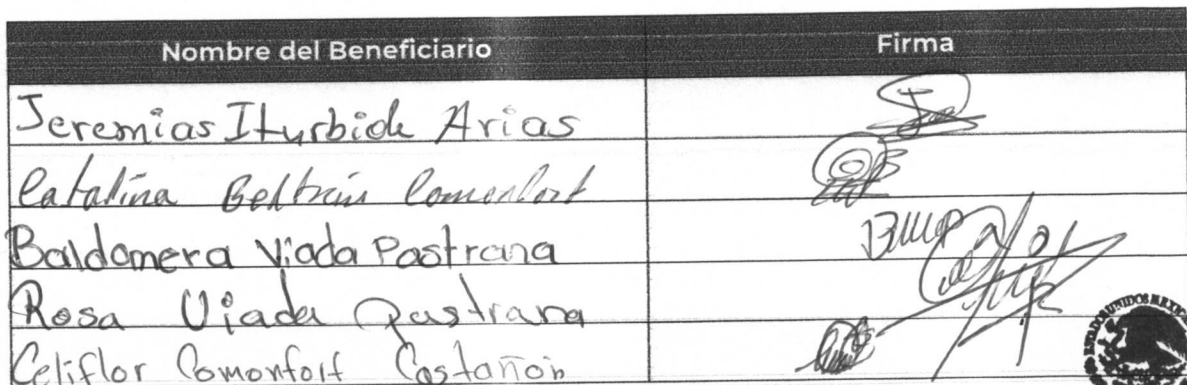 Nombre del Beneficiario Firma
Jeremias Iturbide Arias
Catalina Beltrán Comonfort
Baldomera Viada Pastrana
Rosa Viada Pastrana
Celiflor Comonfort Castañon
UNIDOS MEXIC